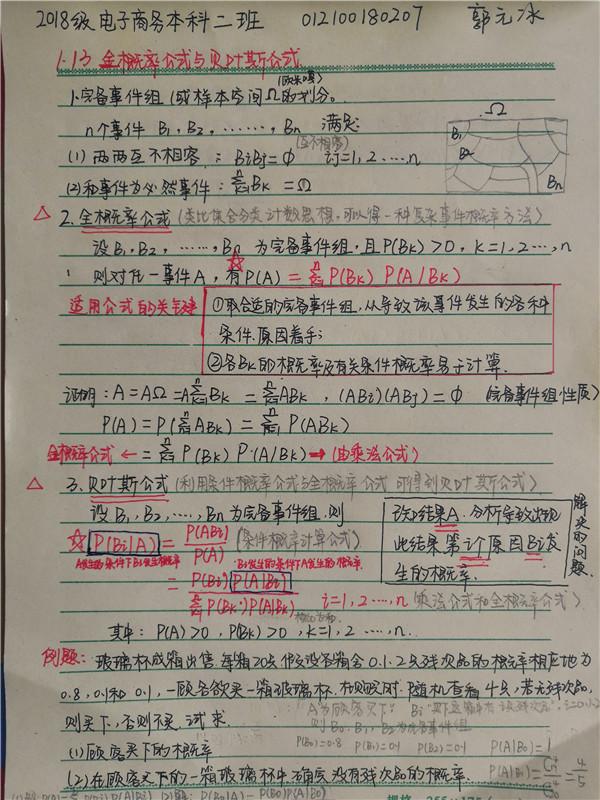 2018级电子商务本科二班 012100180207 郭元冰
1.13 全概率公式与贝叶斯公式
1.完备事件组(或样本空间Ω的划分。
n个事件 B₁,B₂,……,Bn 满足
Ω
B₁
B₂
Bn
(互不相容)
(1)两两互不相容:BiBj=Φ i,j=1,2…,n
(2)和事件为必然事件:∑Bk=Ω
△ 2.全概率公式(类比集合分类计数思想,可以得一种复杂事件概率方法)
设B₁,B₂,……,Bn为完备事件组,且P(Bk)>0,k=1,2…,n
则对任一事件A,有P(A)=∑P(Bk)P(A|Bk)
适用公式的关键
①取合适的完备事件组,从导致该事件发生的各种
条件,原因着手;
②各Bk的概率及有关条件概率易于计算.
证明:A=AΩ=A∑Bk=∑ABk,(ABi)(ABj)=Φ (完备事件组性质)
P(A)=P(∑ABk)=∑P(ABk)
全概率公式←=∑P(Bk)P(A|Bk)→(由乘法公式)
△ 3.贝叶斯公式(利用条件概率公式与全概率公式可得到贝叶斯公式)
设B₁,B₂,…,Bn为完备事件组,则
☆ P(Bi|A)=P(ABi)/P(A) (条件概率计算公式)
A发生的条件下Bi发生概率
Bi发生的条件下A发生的概率
=P(Bi)P(A|Bi)/∑P(Bk)P(A|Bk) i=1,2…,n (乘法公式和全概率公式)
已知结果A.分析导致出现
此结果第i个原因Bi发
生的概率.
解决的问题
其中:P(A)>0,P(Bk)>0,k=1,2…,n.
例题:玻璃杯成箱出售,每箱20只,假设各箱含0.1.2只残次品的概率相应地为
0.8,0.1和0.1,一顾客欲买一箱玻璃杯,在购买时,随机查看4只,若无残次品,
则买下,否则不买,试求
A为顾客买下;
则B₀.B₁,B₂为完备事件组
(1)顾客买下的概率
P(B₀)=0.8 P(B₁)=0.1 P(B₂)=0.1 P(A|B₀)=1
(2)在顾客买下的一箱玻璃杯中,确实没有残次品的概率.
P(A|B₁)= =4/5